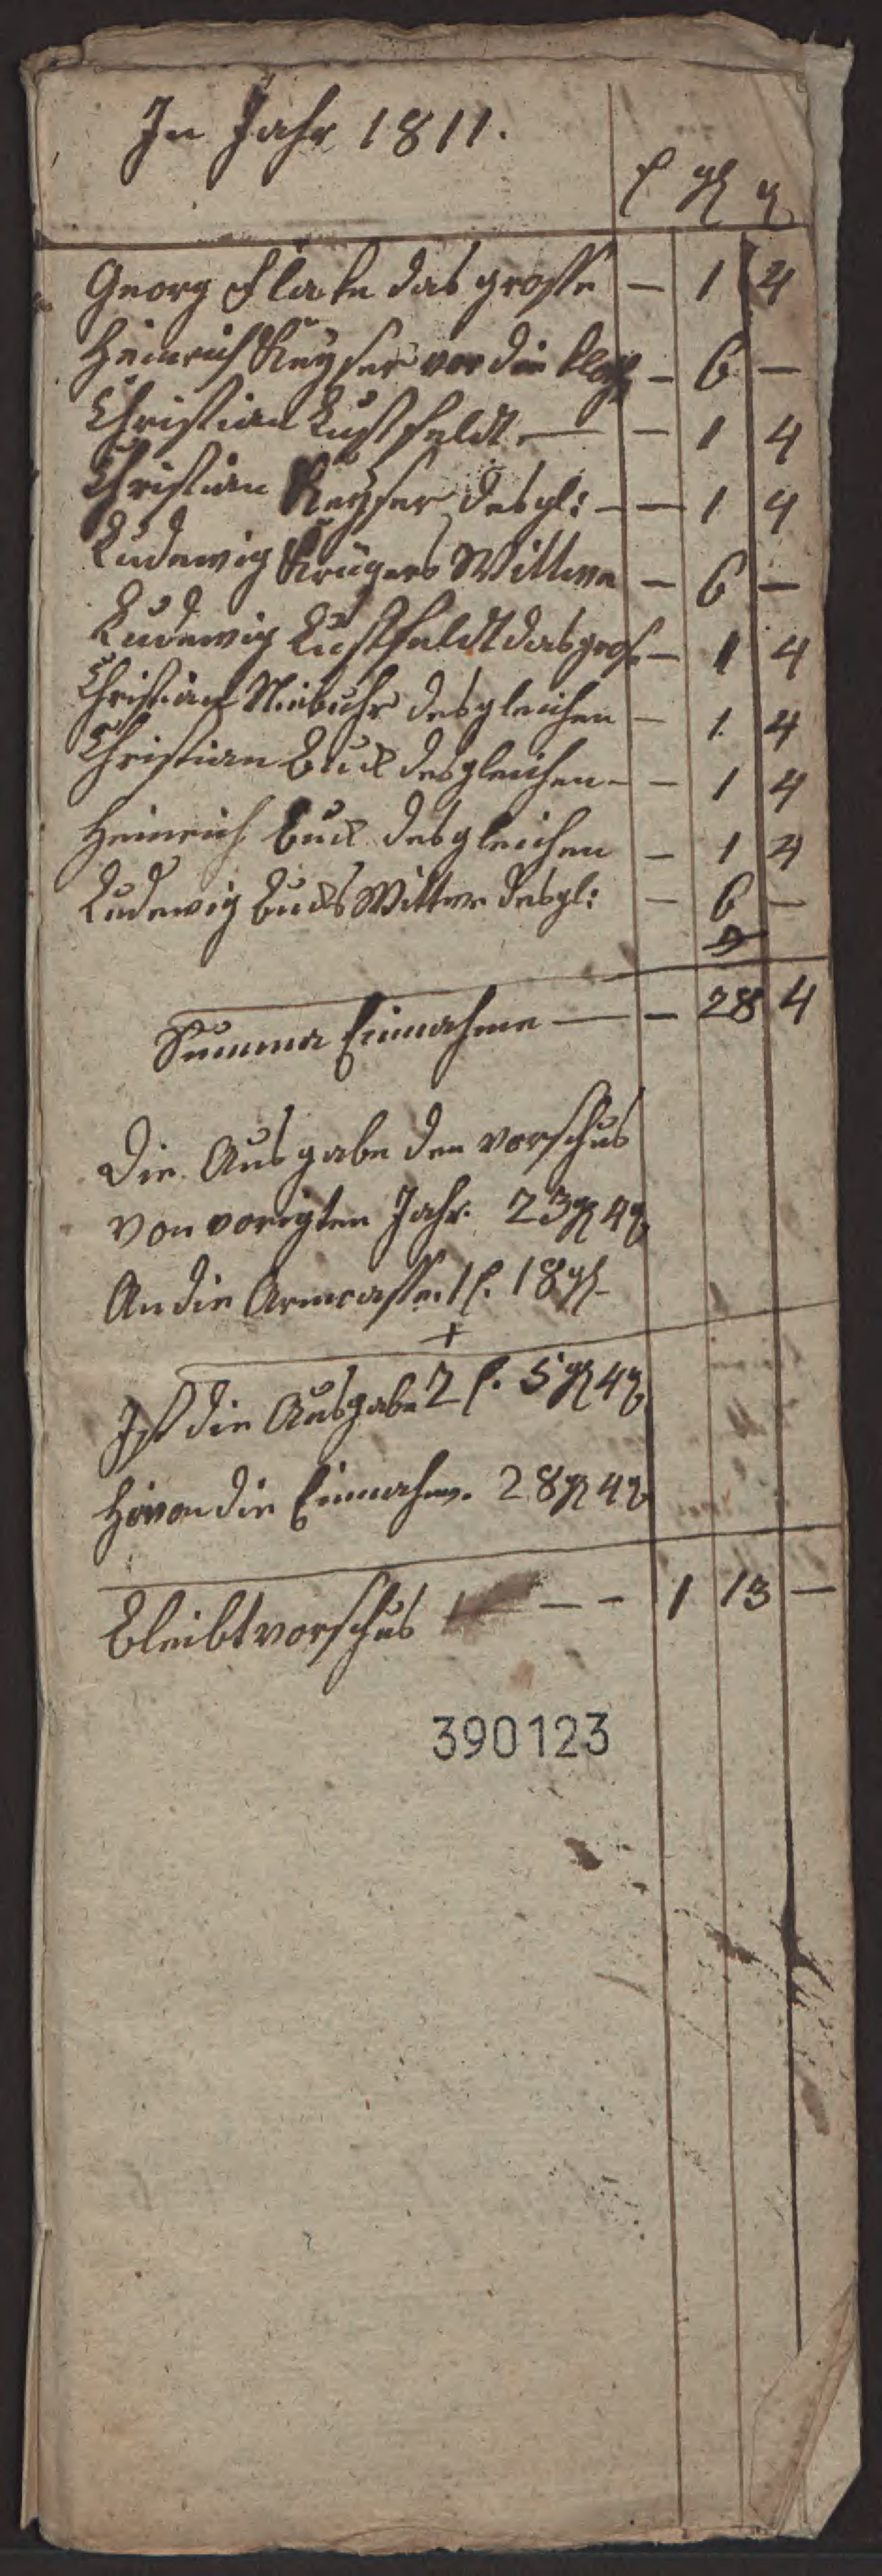 In Jahr 1811.
f ggl ₰
Georg Flake das grosse — 1 4
Heinrich Keyser vor die — 6 —
Christian Lustfeldt — — 1 4
Christian Keyser desgl: — — 1 4
Ludewig Krügers Wittwe — 6 —
Ludewig Lustfeldt das gros — 1 4
Christian Niebuhr desgleichen — 1 4
Christian Buck desgleichen — — 1 4
Heinrich Buck desgleichen — 1 4
Ludewig Bucks Wittwe desgl: — 6 —
Summa Einnahme — — 28 4
Die Ausgabe den vorschus
von vorigten Jahr. 23 ggl 4 ₰
An die Armcasse. 1 f. 18 ggl
+
Ist die Ausgabe 2 f. 5 ggl 4 ₰
Hivon die Einnahm. 28 ggl 4 ₰
Bleibt vorschus — — 1 13 —
390123